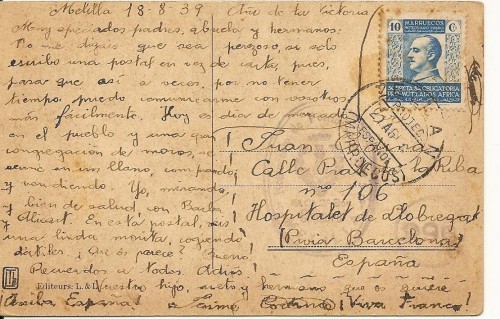 Melilla 18-8-39 Año de la Victoria
Muy apreciados padres, abuela y hermanos.
No me digais que sea perezoso, si solo
escribo una postal en vez de carta, pues,
pasa que asi a veces, por no tener
tiempo, puedo comunicarme con vosotros
más facilmente. Hoy es dia de mercado
en el pueblo y una gran
congregación de moros, se
reune en un llano, comprando
y vendiendo. Yo, mirando,
y bien de salud con
Alicart. En esta postal, veis
una linda morita, cogiendo
dátiles. ¿Que os parece? Bueno,
Recuerdos a todos. Adios!
Vuestro hijo, nieto y hermano que os quiere
¡Arriba España! Jaime ¡Viva Franco!
Editeurs: L. & L.
MARRUECOS
10 Cs
MUTILADOS AFRICA
21 AGO
Juan
Calle Prat de la Riba
nro 106
Hospitalet de Llobregat
(Provia Barcelona)
España